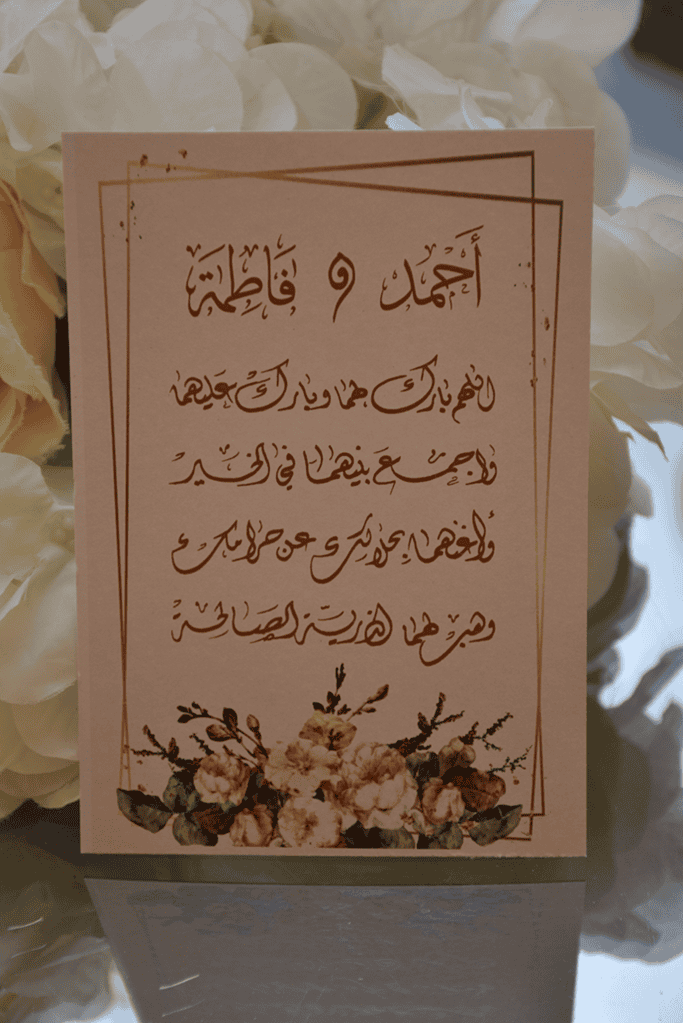 أَحْمَد و فَاطِمَة
اللهم بارك لهما وبارك عَليهما
واجمع بينهما في الخير
وأغنهما بحلالك عن حرامك
وهب لهما الذريّة الصَالحة